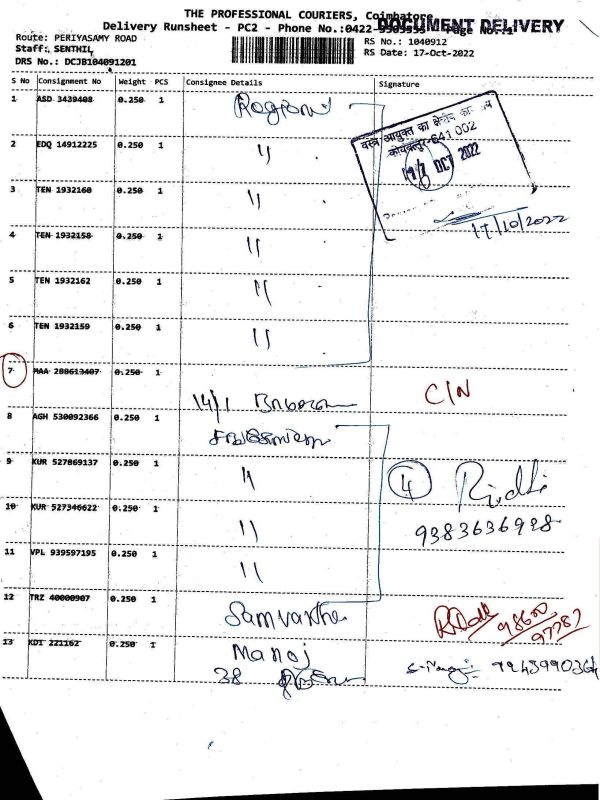 THE PROFESSIONAL COURIERS, Coimbatore
DOCUMENT DELIVERY
Delivery Runsheet - PC2 - Phone No.:0422-
Route: PERIYASAMY ROAD
RS No.: 1040912
Staff: SENTHIL
RS Date: 17-Oct-2022
DRS No.: DCJB104091201
S No Consignment No Weight PCS Consignee Details Signature
1 ASD 3439408 0.250 1
2 EDQ 14912225 0.250 1 "
3 TEN 1932160 0.250 1 "
4 TEN 1932158 0.250 1 "
5 TEN 1932162 0.250 1 "
6 TEN 1932159 0.250 1 "
वस्त्र आयुक्त का क्षेत्रीय
कोयम्बत्तूर-641 002
17 OCT 2022
17/10/2022
7 MAA 288613407 0.250 1 14/1 C/N
8 AGH 530092366 0.250 1
9 KUR 527869137 0.250 1 " 4
10 KUR 527346622 0.250 1 " 9383636928
11 VPL 939597195 0.250 1 "
12 TRZ 40000907 0.250 1 Samvartha 98600
97282
13 KDT 221162 0.250 1 Manoj
38